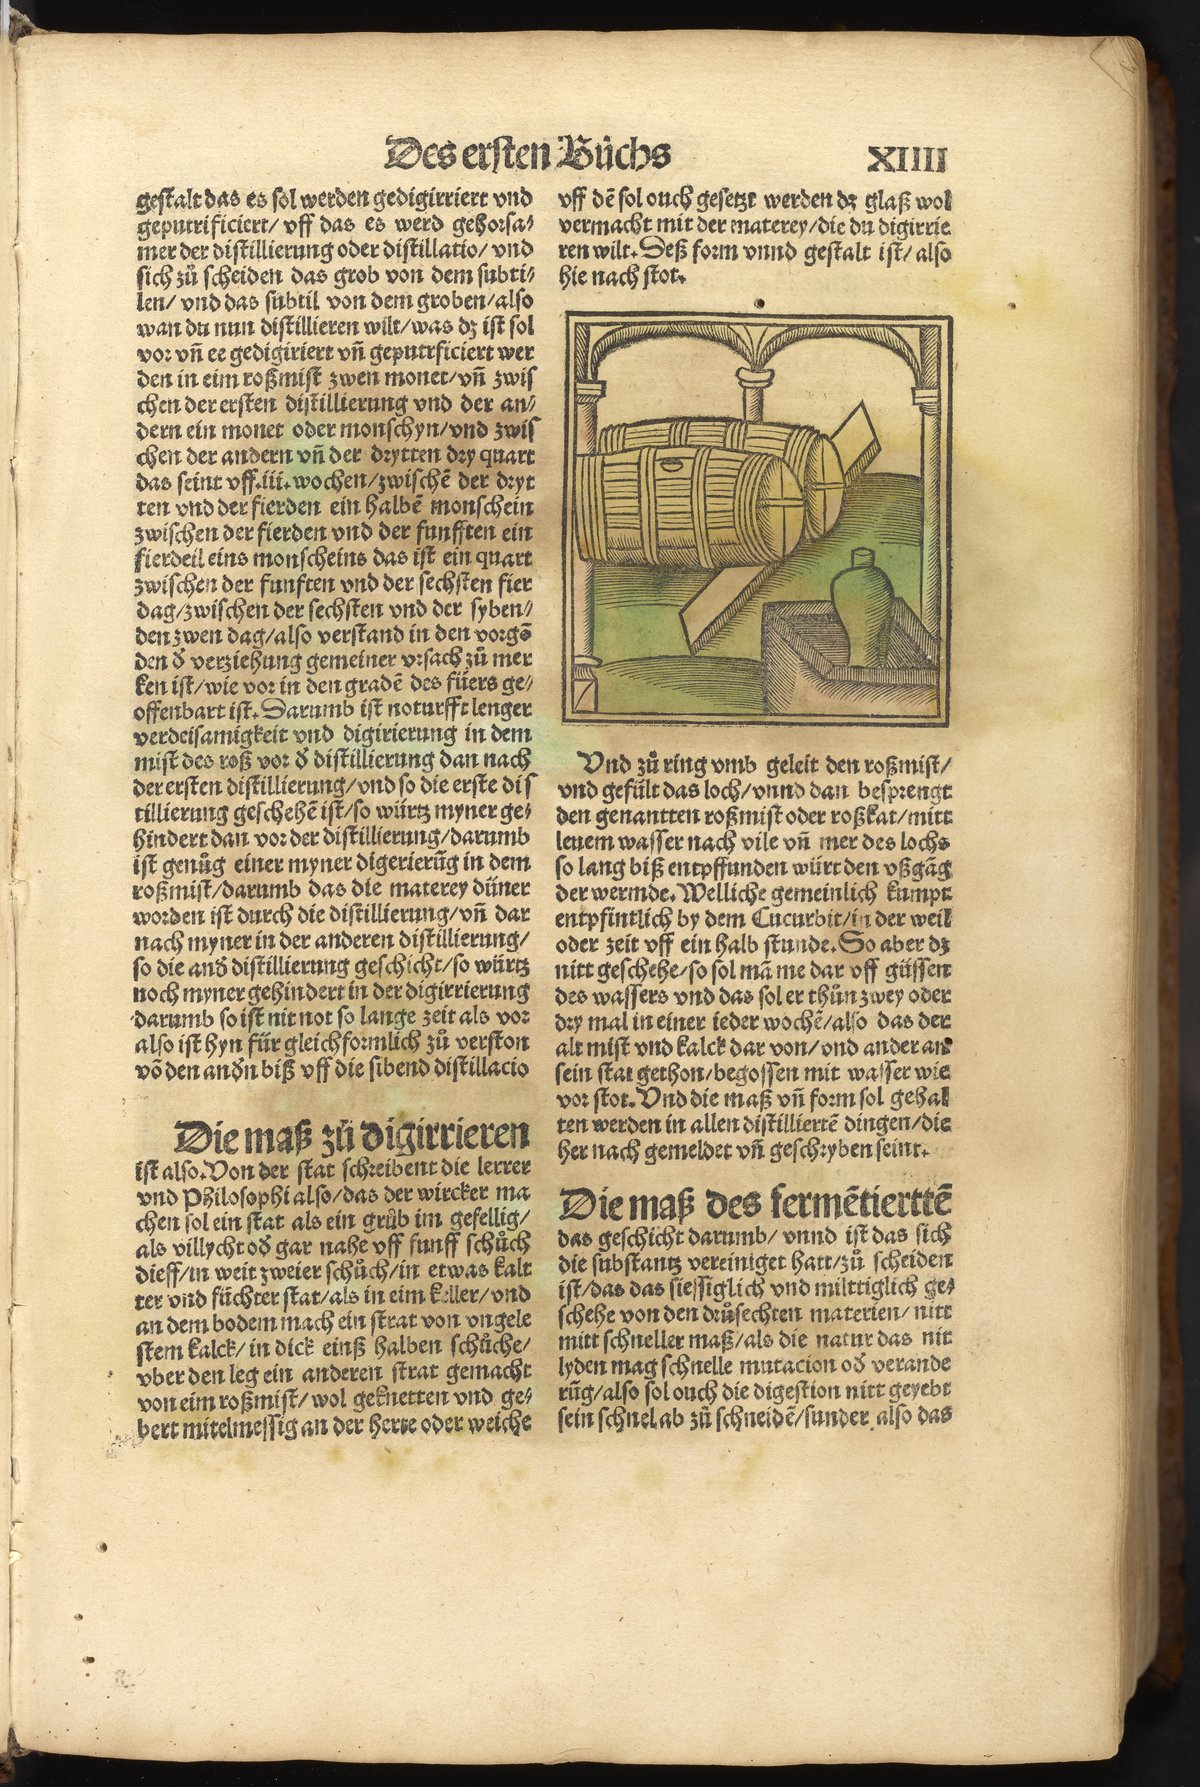 Des ersten Bůchs
XIIII
gestalt das es sol werden gedigirriert vnd
geputrificiert/ vff das es werd gehorsa⸗
mer der distillierung oder distillatio/ vnd
sich zů scheiden das grob von dem subti⸗
len/ vnd das subtil von dem groben/also
wan du nun distillieren wilt/was dz ist sol
vor vñ ee gedigiriert vñ geputrficiert wer
den in eim roßmist zwen monet/vñ zwis
chen der ersten distillierung vnd der an⸗
dern ein monet oder monschyn/vnd zwis
chen der andern vñ der drytten dry quart
das seint vff.iii.wochen/zwischē der dryt
ten vnd der fierden ein halbē monschein
zwischen der fierden vnd der funfften ein
fierdeil eins monscheins das ist ein quart
zwischen der funften vnd der sechsten fier
dag/zwischen der sechsten vnd der syben⸗
den zwen dag/also verstand in den vorgō
den ď verziehung gemeiner vrsach zů mer
ken ist/wie vor in den gradē des füers ge⸗
offenbart ist.Darumb ist noturfft lenger
verdeisamigkeit vnd digirierung in dem
mist des roß vor ď distillierung dan nach
der ersten distillierung/vnd so die erste dis
tillierung geschehē ist/so würtz myner ge⸗
hindert dan vor der distillierung/darumb
ist genůg einer myner digerierūg in dem
roßmist/darumb das die materey düner
worden ist durch die distillierung/vñ dar
nach myner in der anderen distillierung/
so die anď distillierung geschicht/so würtz
noch myner gehindert in der digirrierung
darumb so ist nit not so lange zeit als vor
also ist hyn für gleichformlich zů verston
vō den anďn biß vff die sibend distillacio
Die maß zů digirrieren
ist also.Von der stat schreibent die lerrer
vnd Philosophi also/das der wircker ma
chen sol ein stat als ein grůb im gefellig/
als villycht oď gar nahe vff funff schůch
dieff/in weit zweier schůch/in etwas kalt
ter vnd füchter stat/als in eim keller/vnd
an dem bodem mach ein strat von vngele
stem kalck/in dick einß halben schůche/
vber den leg ein anderen strat gemacht
von eim roßmist/ wol geknetten vnd ge⸗
bert mitelmessig an der herte oder weiche
vff dē sol ouch gesetzt werden dz glaß wol
vermacht mit der materey/die du digirrie
ren wilt.Deß form vnnd gestalt ist/ also
hie nach stot.
Vnd zů ring vmb geleit den roßmist/
vnd gefült das loch/vnnd dan besprengt
den genantten roßmist oder roßkat/mitt
leuem wasser nach vile vñ mer des lochs
so lang biß entpffunden würt den vßgāg
der wermde.Welliche gemeinlich kumpt
entpfintlich by dem Cucurbit/in der weil
oder zeit vff ein halb stunde.So aber dz
nitt geschehe/so sol mā me dar vff güssen
des wassers vnd das sol er thůn zwey oder
dry mal in einer ieder wochē/also das der
alt mist vnd kalck dar von/vnd ander an
sein stat gethon/begossen mit wasser wie
vor stot.Vnd die maß vñ form sol gehal
ten werden in allen distilliertē dingen/die
her nach gemeldet vñ geschryben seint.
Die maß des fermētierttē
das geschicht darumb/ vnnd ist das sich
die substantz vereiniget hatt/zů scheiden
ist/das das siessiglich vnd milttiglich ge⸗
schehe von den drůsechten materien/ nitt
mitt schneller maß/als die natur das nit
lyden mag schnelle mutacion oď verande
rūg/also sol ouch die digestion nitt geyebt
sein schnel ab zů schneidē/sunder also das